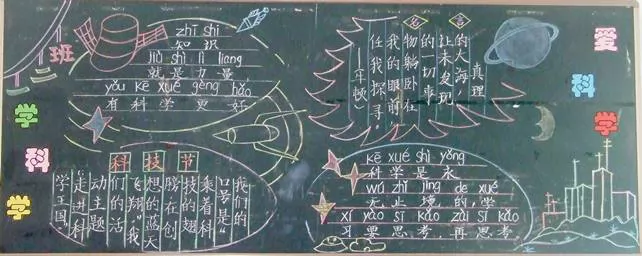 班
学
科
学
zhī shi
知识
jiù shì lì liàng
就是力量
yǒu kē xué gèng hǎo
有科学更好
科技节
我们的
口号是“
乘着科
技的翅
膀在创
想的蓝天
飞翔”我
们的活
动主题
“走进科
学王国”
名言
真理
的大海，
让未发现
的一切事
物躺卧在
我的眼前，
任我探寻。
——牛顿
kē xué shì yǒng
科学是永
wú zhǐ jìng de xué
无止境的，学
xí yào sī kǎo zài sī kǎo
习要思考，再思考。
爱
科
学